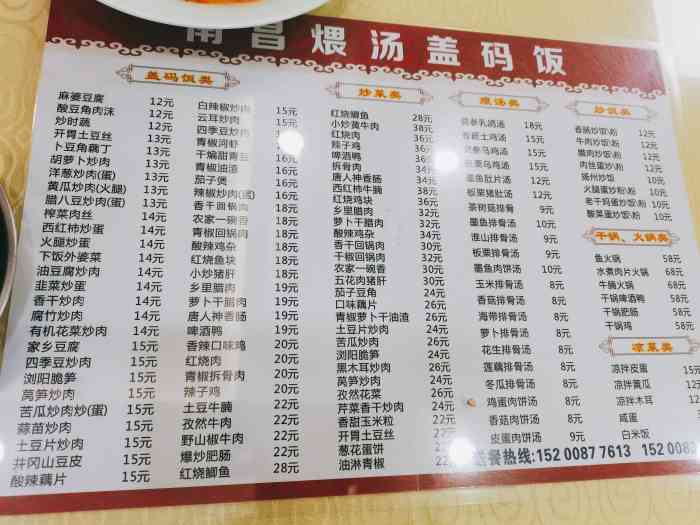 南昌煨汤盖码饭
盖码饭类
麻婆豆腐 12元
酸豆角肉沫 12元
炒时蔬 12元
开胃土豆丝 13元
卜豆角藕丁 13元
胡萝卜炒肉 13元
洋葱炒肉(蛋) 13元
黄瓜炒肉(火腿) 13元
腊八豆炒肉(蛋) 13元
榨菜肉丝 14元
西红柿炒蛋 14元
火腿炒蛋 14元
下饭外婆菜 14元
油豆腐炒肉 14元
韭菜炒蛋 14元
香干炒肉 14元
腐竹炒肉 14元
有机花菜炒肉 14元
家乡豆腐 15元
四季豆炒肉 15元
浏阳脆笋 15元
莴笋炒肉 15元
苦瓜炒肉炒(蛋) 15元
蒜苗炒肉 15元
土豆片炒肉 15元
井冈山豆皮 15元
酸辣藕片 15元
白辣椒炒肉 15元
云耳炒肉 15元
四季豆炒肉
青椒河虾
干煸甜青豆 16元
青椒油渣 16元
茄子煲 16元
辣椒炒肉(蛋) 16元
香干回锅肉
农家一碗香
青椒回锅肉 18元
酸辣鸡杂 18元
红烧鱼块 18元
小炒猪肝 18元
乡里腊肉 19元
萝卜干腊肉 19元
唐人神香肠 19元
啤酒鸭 19元
香辣口味鸡 20元
红烧肉 20元
青椒拆骨肉 20元
辣子鸡 20元
土豆牛腩 22元
孜然牛肉 22元
野山椒牛肉 22元
爆炒肥肠 22元
红烧鲫鱼 28元
炒菜类
红烧鲫鱼 28元
小炒黄牛肉 38元
红烧肉 36元
辣子鸡 36元
啤酒鸭 36元
拆骨肉 36元
唐人神香肠 36元
西红柿牛腩 38元
红烧鸡块 36元
乡里腊肉 32元
萝卜干腊肉 32元
酸辣鸡杂 34元
香干回锅肉 32元
干椒回锅肉 32元
农家一碗香 32元
五花肉猪肝 32元
茄子豆角 24元
口味藕片 24元
青椒萝卜干油渣 26元
土豆片炒肉 24元
苦瓜炒肉 24元
浏阳脆笋 24元
黑木耳炒肉 26元
莴笋炒肉 24元
孜然花菜 26元
芹菜香干炒肉 24元
香甜玉米粒 22元
开胃土豆丝 22元
葱花蛋饼 22元
油淋青椒 22元
煨汤类
参乳鸽汤 18元
土鸡汤 15元
参乌鸡汤 15元
菜乌鸡汤 15元
墨鱼肚片汤 15元
板栗猪肚汤 15元
茶树菇排骨 9元
墨鱼排骨汤 9元
淮山排骨汤 9元
板栗排骨 9元
墨鱼肉饼汤 10元
玉米排骨汤 8元
香菇排骨汤 8元
海带排骨汤 8元
萝卜排骨汤 8元
花生排骨汤 8元
莲藕排骨汤 8元
冬瓜排骨汤 8元
鸡蛋肉饼汤 8元
香菇肉饼汤 8元
皮蛋肉饼汤 9元
炒饭类
香肠炒饭\粉 12元
牛肉炒饭\粉 12元
腊肉炒饭\粉 12元
肉丝蛋炒饭\粉 12元
扬州炒饭 10元
火腿蛋炒饭\粉 10元
老干妈蛋炒饭\粉 10元
酸菜蛋炒饭\粉 10元
干锅、火锅类
鱼火锅 58元
水煮肉片火锅 68元
牛腩火锅 68元
干锅啤酒鸭 58元
干锅肥肠 58元
干锅鸡 58元
凉菜类
凉拌皮蛋 15元
凉拌黄瓜 12元
凉拌木耳 12元
咸蛋
白米饭
送餐热线:152 0087 7613 152 008